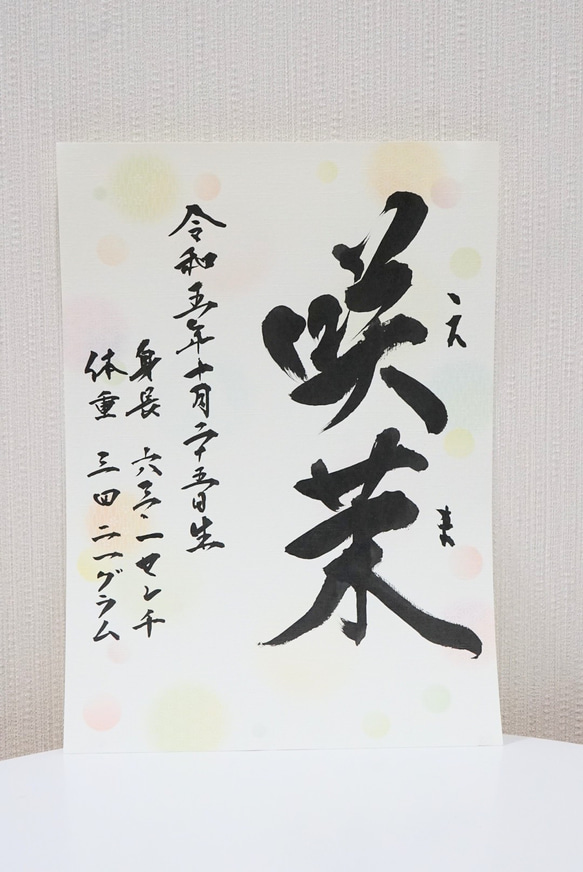 咲茉
えま
令和五年十月二十五日生
身長 六三・一センチ
体重 三四二一グラム